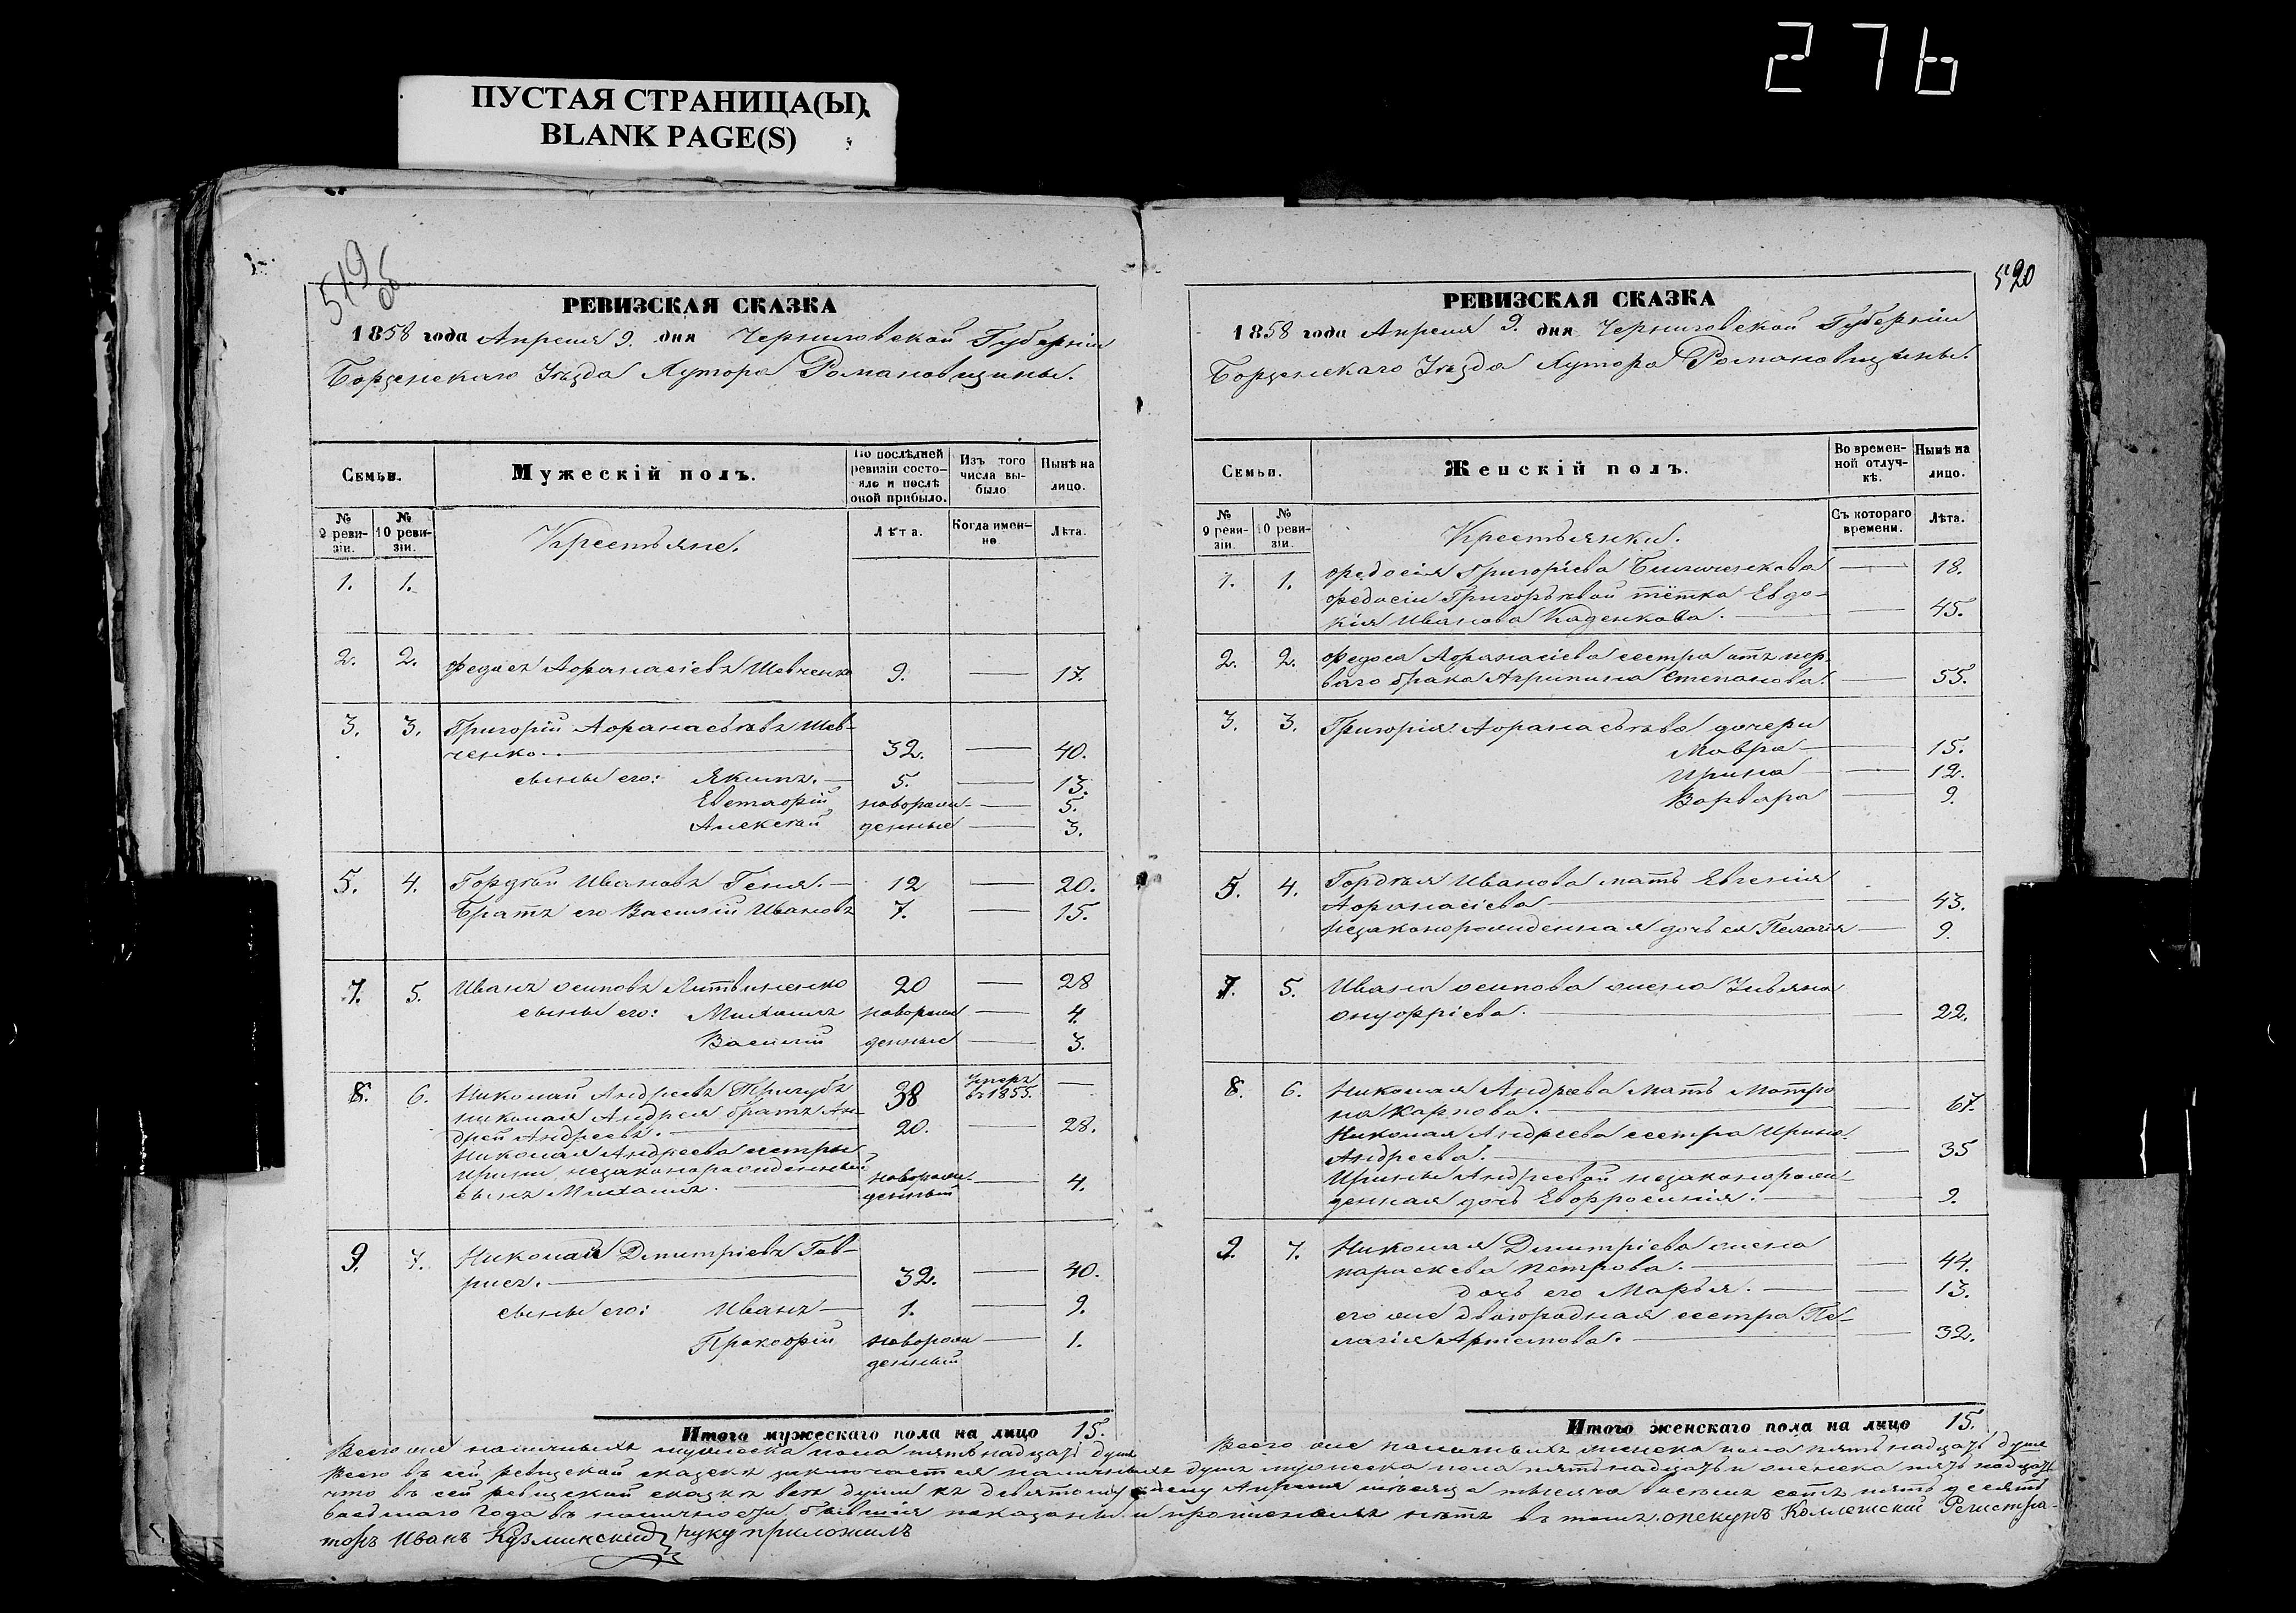 276
ПУСТАЯ СТРАНИЦА(Ы)
BLANK PAGE(S)
519 об
РЕВИЗСКАЯ СКАЗКА
1858 года Апреля 9. дня Черниговской Губерніи
Борзенскаго Уѣзда Хутора Романовщины.
Семьи.
Мужескій полъ.
По послѣдней ревизіи состояло и послѣ оной прибыло.
Изъ того числа выбыло
Нынѣ на лицо.
№ 9 ревизіи.
№ 10 ревизіи.
Крестьяне.
Лѣта.
Когда именно
Лѣта.
1. 1.
2. 2. Федосъ Афанасіевъ Шевченко 9. — 17.
3. 3. Григорій Афанасьевъ Шев-
ченко. 32. — 40.
сыны его: Якимъ. — 5. — 13.
Евстафій новорож- — 5.
Алексѣй денные — 3.
5. 4. Гордѣй Ивановъ Геня. — 12 — 20.
Братъ его Василій Ивановъ 7. — 15.
7. 5. Иванъ Осиповъ Литвиненко 20 — 28
сыны его: Михаилъ новорож — 4.
Василій денные — 3.
8. 6. Николай Андреевъ Тригубъ 38 Умеръ въ 1855. —
Николая Андрея братъ Ан-
дрей Андреевъ. 20. — 28.
Николая Андреева сестры
Ирины незаконорожденный
сынъ Михаилъ. новорож- денный — 4.
9. 7. Николай Дмитріевъ Гав-
рисъ. 32. — 40.
сыны его: Иванъ — 1. — 9.
Прокофій новорож — 1.
денный
Итого мужескаго пола на лицо 15.
520
РЕВИЗСКАЯ СКАЗКА
1858 года Апреля 9. дня Черниговской Губерніи
Борзенскаго Уѣзда Хутора Романовщины.
Семьи.
Женскій полъ.
Во временной отлучкѣ.
Нынѣ на лицо.
№ 9 ревизіи.
№ 10 ревизіи.
Крестьянки.
Съ котораго времени.
Лѣта.
1. 1. Федосія Григоріева — 18.
Федосіи Григорьевой тётка Евдо-
кія Иванова Каденкова. — 45.
2. 2. Федоса Афанасіева сестра отъ пер-
ваго брака Агрипина Степанова. — 55.
3. 3. Григорія Афанасьева дочери
Мавра — 15.
Ирина — 12.
Варвара — 9.
5. 4. Гордѣя Иванова мать Евгенія
Афанасіева — 43.
незаконорожденная дочь ея Пелагія — 9.
7. 5. Ивана Осипова жена Ульяна
Онуфріева. — 22.
8. 6. Николая Андреева мать Матро
на Карпова. — 67.
Николая Андреева сестра Ирина
Андреева. — 35
Ирины Андреевой незаконорож-
денная дочь Евфросинія. — 9.
9. 7. Николая Дмитріева жена
Параскева Петрова. — 44.
дочь его Марья. — 13.
его же двоюродная сестра Пе-
лагія Артемова. — 32.
Итого женскаго пола на лицо 15.
Всего же наличныхъ мужеска пола пятьнадцать душъ
Всего же наличныхъ женска пола пятьнадцать душъ
Всего въ сей ревизской сказкѣ заключается наличныхъ душъ мужеска пола пятьнадцать и женска пятьнадцать
что въ сей ревизской сказкѣ всѣ души къ девятому числу Апреля мѣсяца тысяча восемь сотъ пятьдесятъ
восьмаго года въ наличности бывшія показаны и прописныхъ нѣтъ въ томъ опекунъ Коллежскій Регистра-
торъ Иванъ Кузминскій руку приложилъ